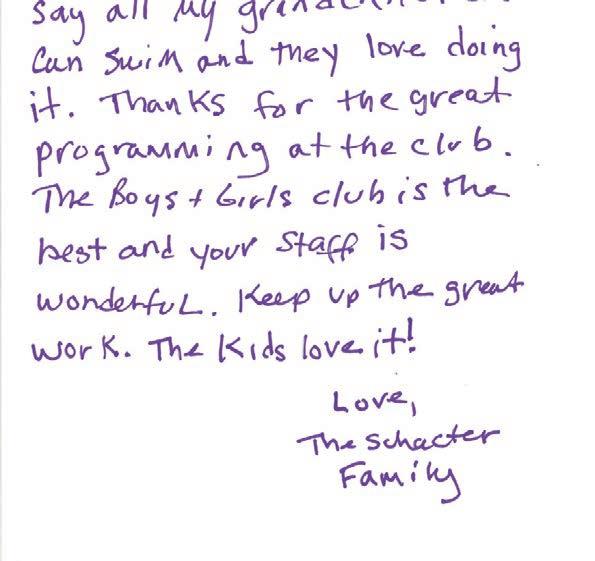 say all my
can swim and they love doing
it. Thanks for the great
programming at the club.
The Boys + Girls club is the
best and your staff is
wonderful. Keep up the great
work. The Kids love it!
Love,
The Schacter
Family